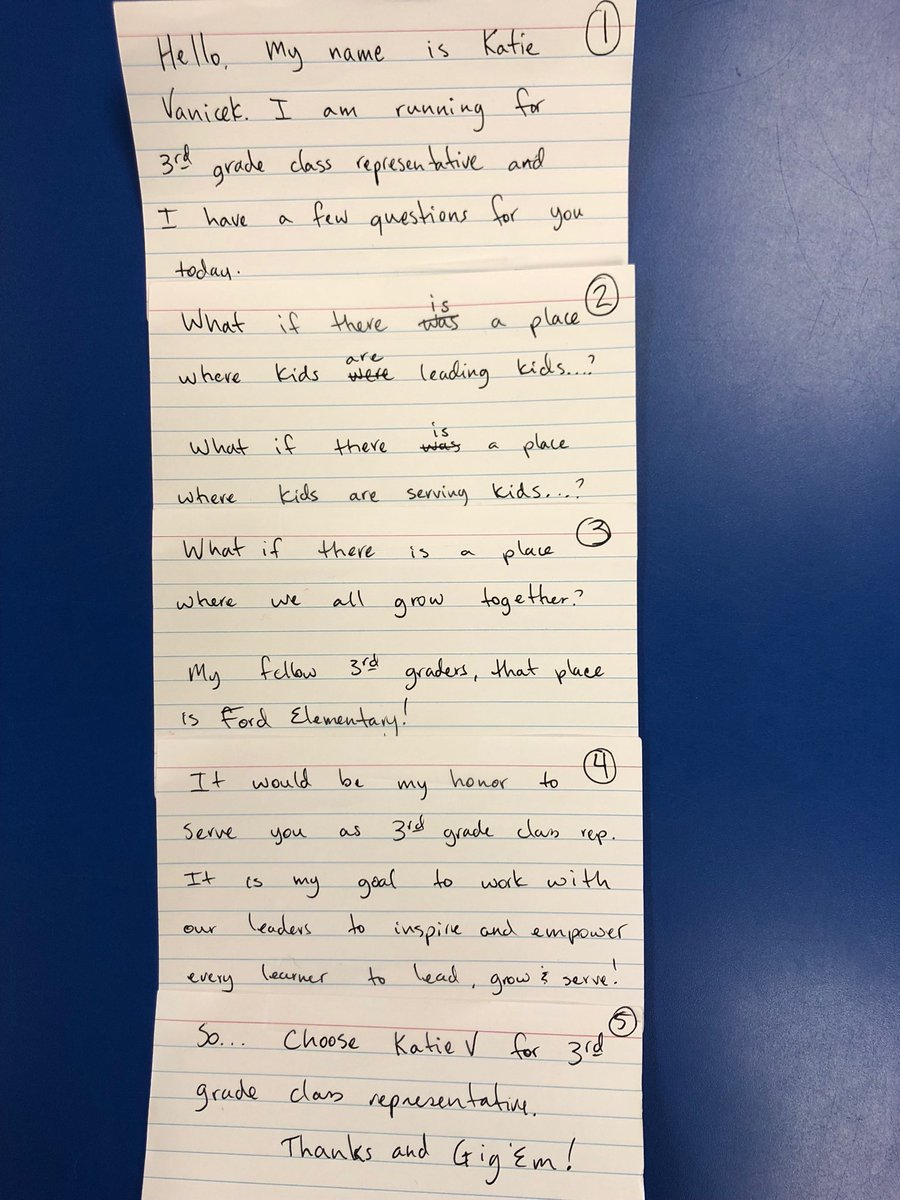 Hello. My name is Katie ①
Vanicek. I am running for
3rd grade class representative and
I have a few questions for you
today.
②
What if there ~~was~~ is a place
where kids ~~were~~ are leading kids...?
What if there ~~was~~ is a place
where kids are serving kids....?
③
What if there is a place
where we all grow together?
My fellow 3rd graders, that place
is Ford Elementary!
④
It would be my honor to
serve you as 3rd grade class rep.
It is my goal to work with
our leaders to inspire and empower
every learner to lead, grow & serve!
⑤
So... Choose Katie V for 3rd
grade class representative.
Thanks and Gig 'Em!